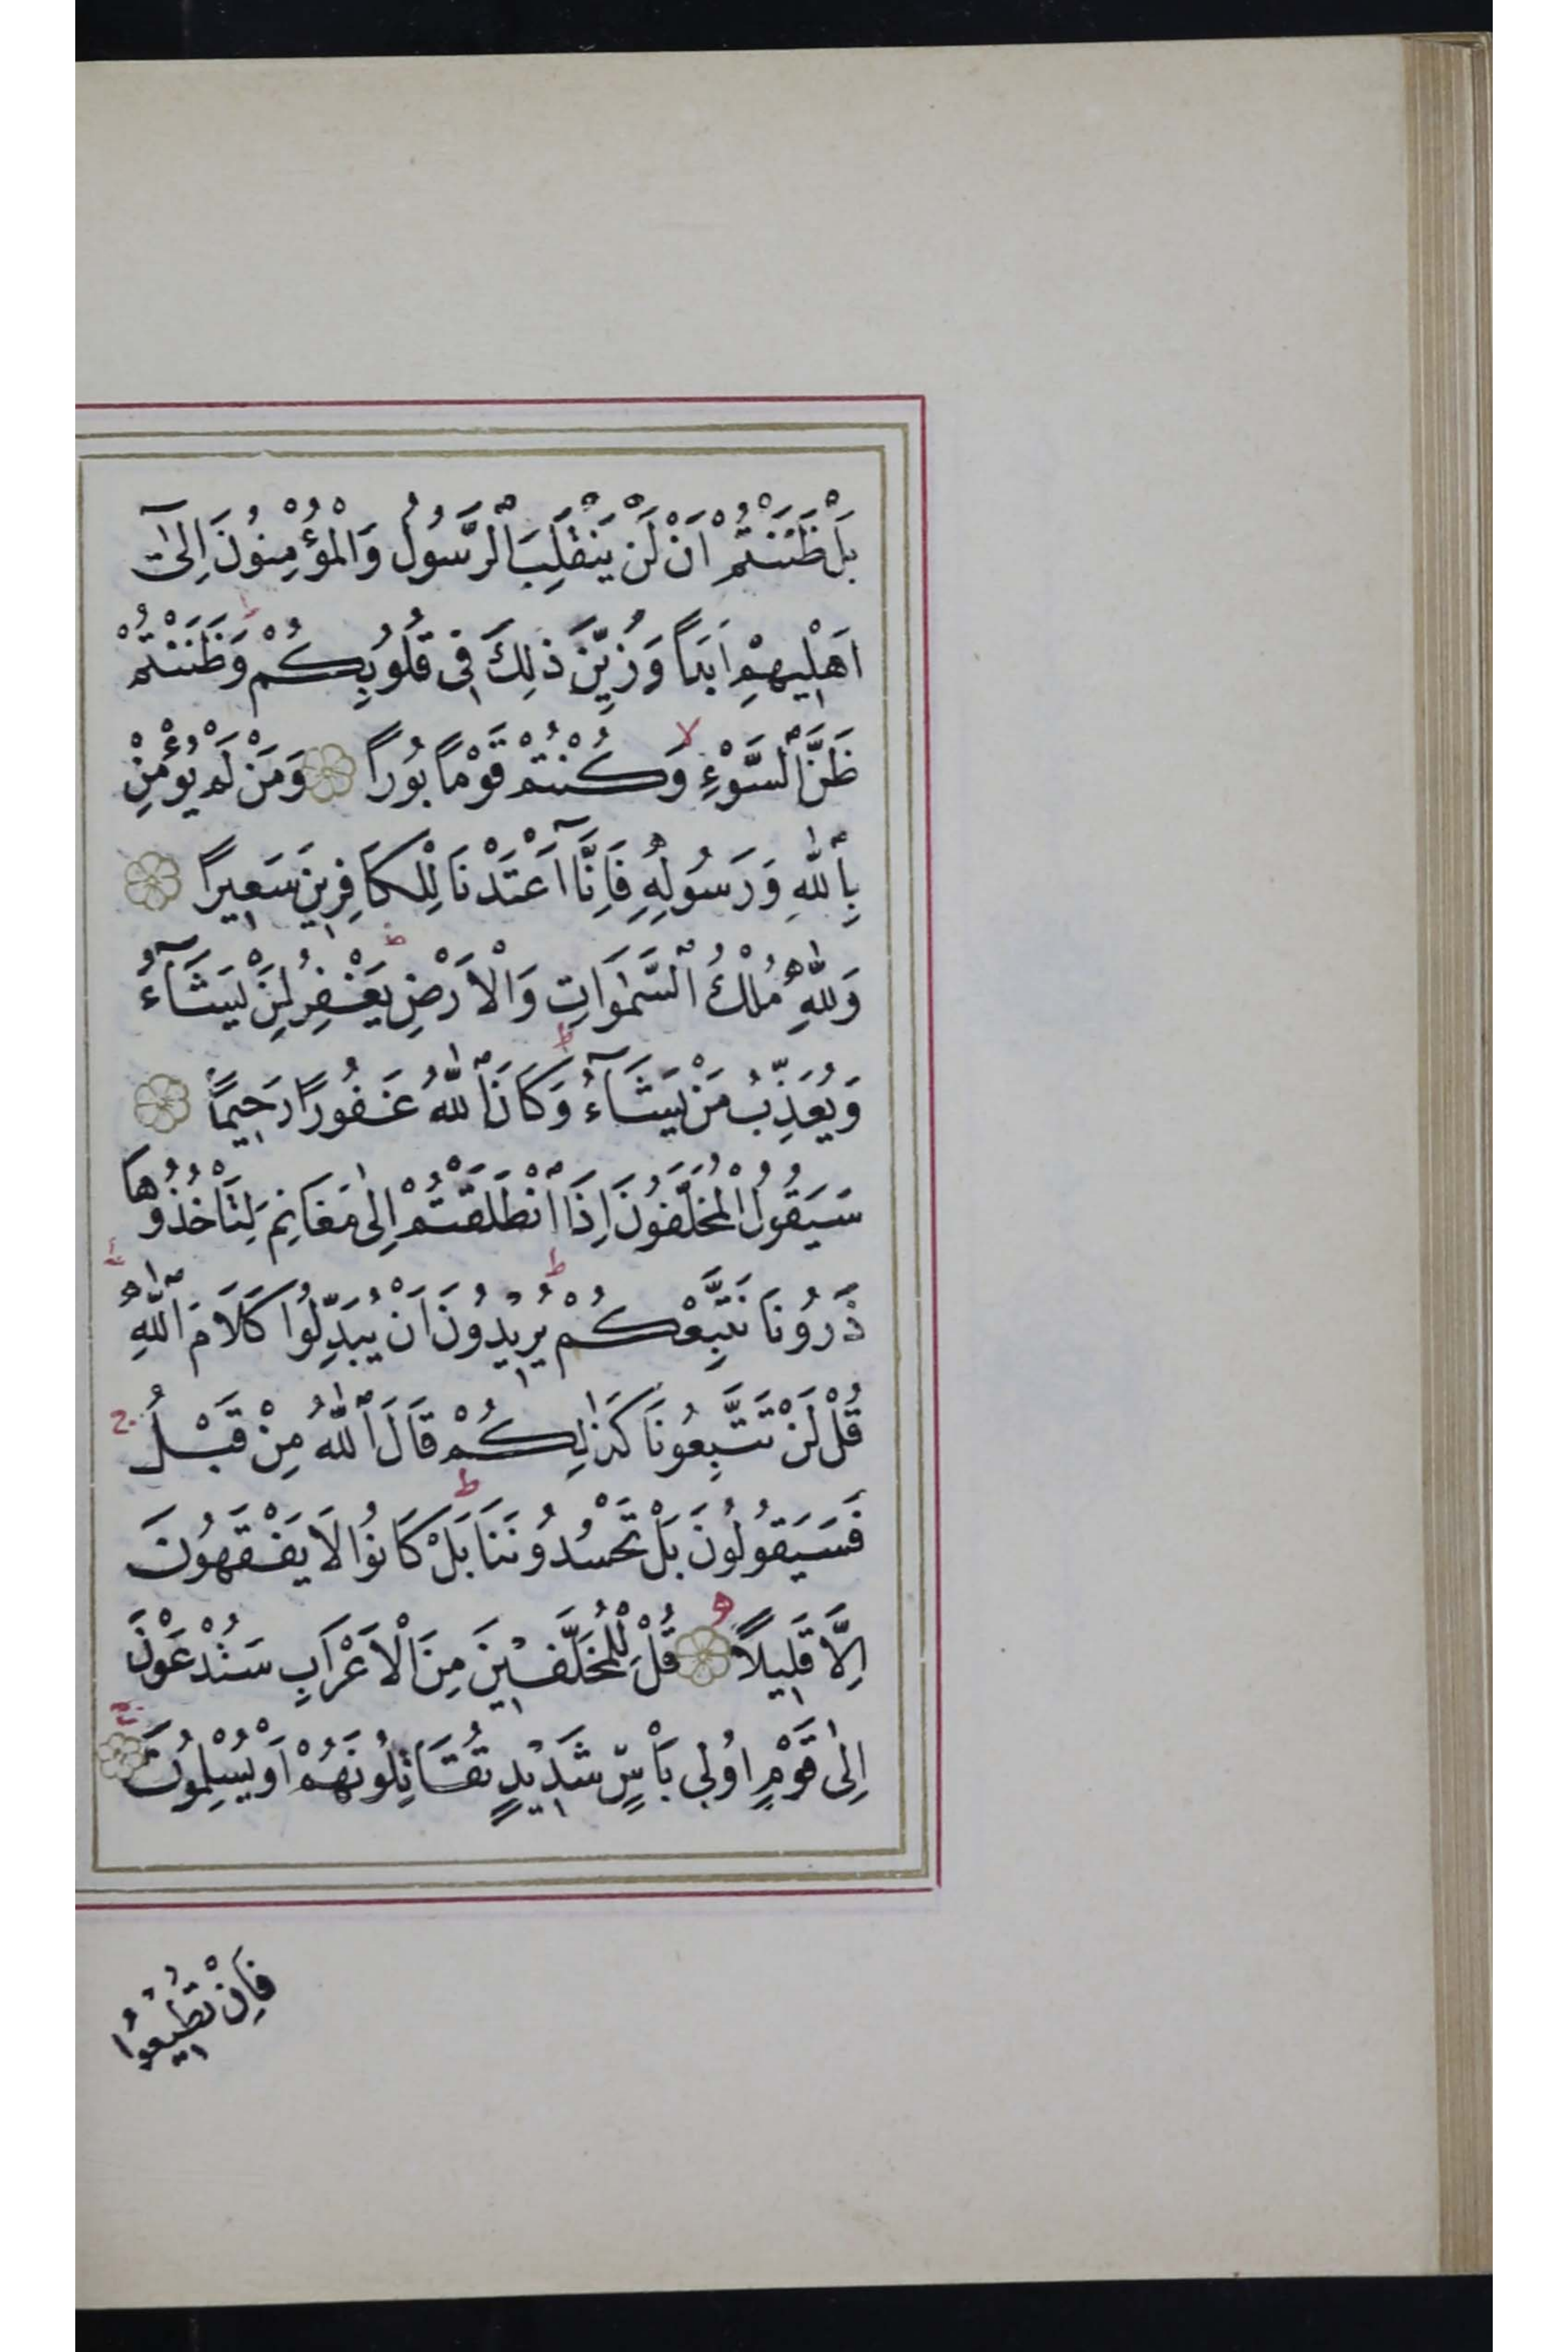 بَلْ ظَنَنْتُمْ اَنْ لَنْ يَنْقَلِبَ الرَّسُولُ وَالْمُؤْمِنُونَ اِلٰٓى
اَهْلِيهِمْ اَبَدًا وَزُيِّنَ ذٰلِكَ فِى قُلُوبِكُمْ ط وَظَنَنْتُمْ
ظَنَّ السَّوْءِ لا وَكُنْتُمْ قَوْمًا بُورًا وَمَنْ لَمْ يُؤْمِنْ
بِاللّٰهِ وَرَسُولِهٖ فَاِنَّآ اَعْتَدْنَا لِلْكَافِرِينَ سَعِيرًا
وَلِلّٰهِ مُلْكُ السَّمٰوَاتِ وَالْاَرْضِ ط يَغْفِرُ لِمَنْ يَشَآءُ
وَيُعَذِّبُ مَنْ يَشَآءُ ط وَكَانَ اللّٰهُ غَفُورًا رَحِيمًا
سَيَقُولُ الْمُخَلَّفُونَ اِذَا انْطَلَقْتُمْ اِلٰى مَغَانِمَ لِتَأْخُذُوهَا
ذَرُونَا نَتَّبِعْكُمْ ط يُرِيدُونَ اَنْ يُبَدِّلُوا كَلَامَ اللّٰهِ ط
قُلْ لَنْ تَتَّبِعُونَا كَذٰلِكُمْ قَالَ اللّٰهُ مِنْ قَبْلُ ج
فَسَيَقُولُونَ بَلْ تَحْسُدُونَنَا ط بَلْ كَانُوا لَا يَفْقَهُونَ
اِلَّا قَلِيلًا قُلْ لِلْمُخَلَّفِينَ مِنَ الْاَعْرَابِ سَتُدْعَوْنَ
اِلٰى قَوْمٍ اُولِى بَأْسٍ شَدِيدٍ تُقَاتِلُونَهُمْ اَوْ يُسْلِمُونَ
فَاِنْ تُطِيعُوا